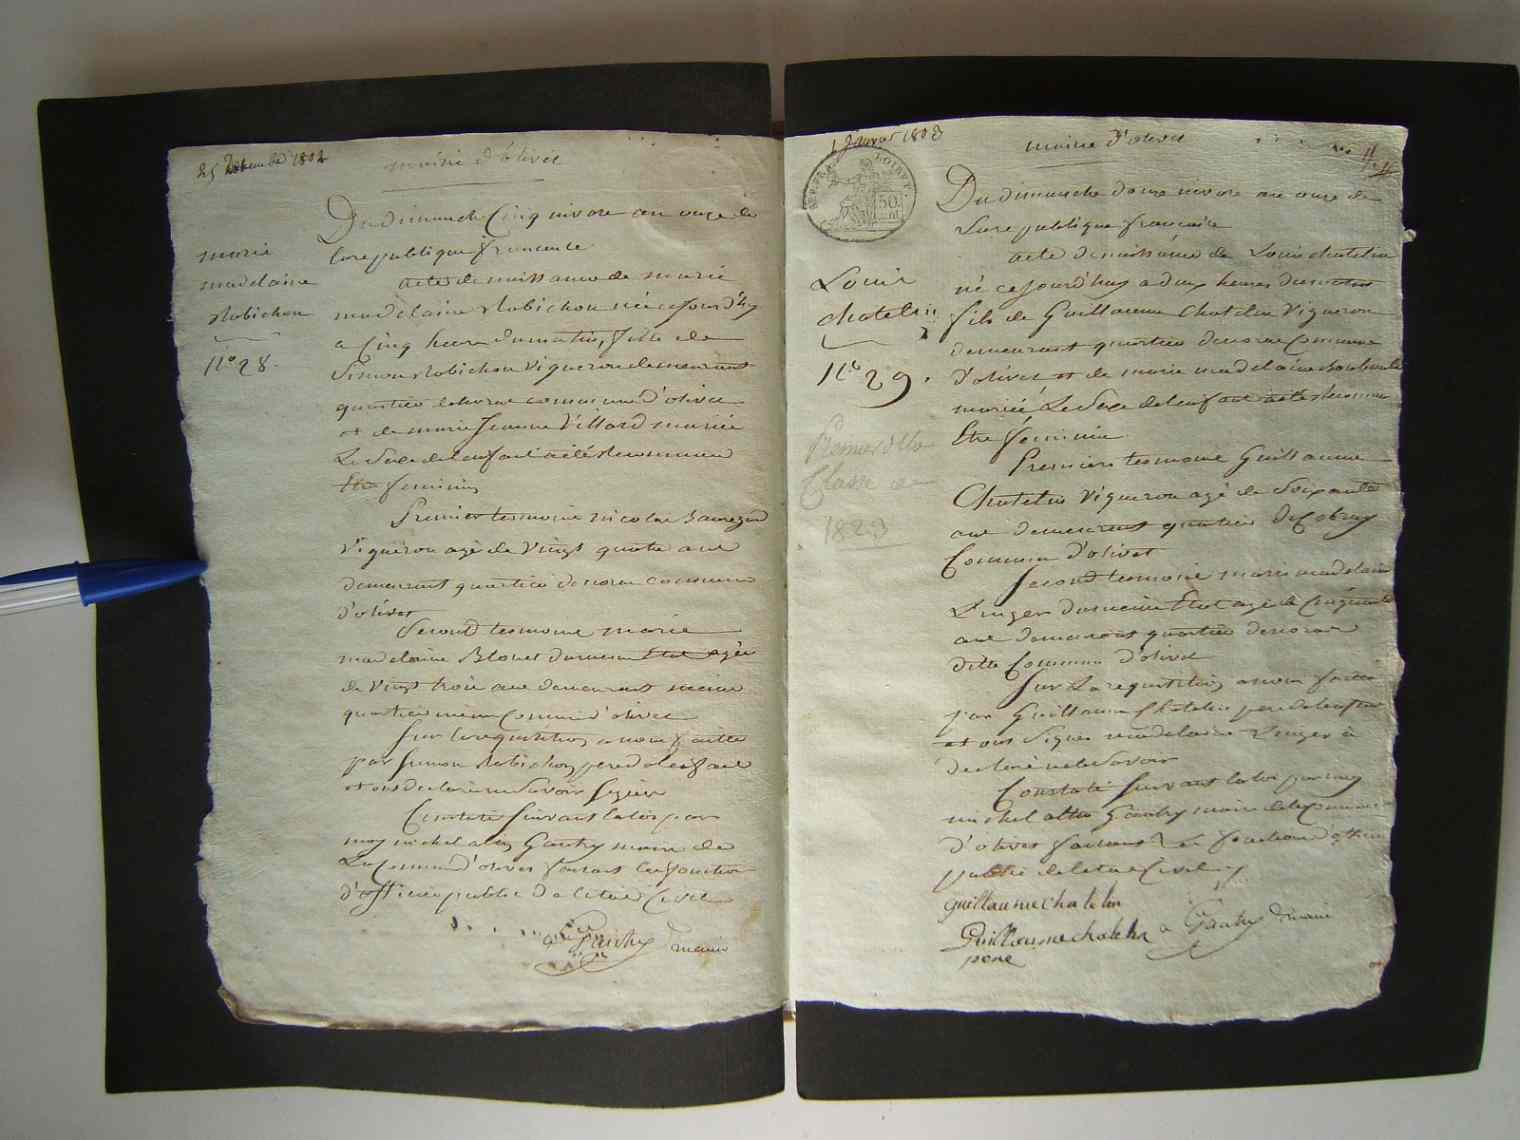 25 décembre 1802
mairie d'olivet
Du dimanche Cinq nivose an onze de
la republique francaise
marie
madelaine
Robichon
N° 28.
acte de naissance de marie
madelaine Robichon née cejourd'huy
a Cinq heure du matin fille de
Simon Robichon Vigneron demeurant
quartier commune d'olivet
et de marie Jeanne Villard mariée
Le Sexe de lenfant a été Reconnu
Etre feminin
Premier tesmoine nicolas
Vigneron agé de Vingt quatre ans
demeurant quartier commune
d'olivet
Second tesmoine marie
madelaine Blouet agée
de Vingt trois ans demeurant meme
quartier meme Commune d'olivet
Sur la requisition a nous faitte
par Simon Robichon pere de lenfant
et ont declaré ne Savoir Signer
Constaté Suivant la loi par
moy michel Gautry maire de
La Commune d'olivet faisant les fonction
d'officier public de letat Civil
Gautry maire
1 Janvier 1803
mairie d'olivet
REP. FRA. LOIRET.
50
Du dimanche douze nivose an onze de
La republique francaise
Louis
chatelin
N° 29.
Premier de la
Classe de
1823
acte de naissance de Louis chatelin
né cejourd'huy a deux heures du matin
fils de Guillaume Chatelin Vigneron
demeurant quartier commune
d'olivet et de marie madelaine
mariée Le Sexe de lenfant a été Reconnu
Etre féminin
Premiere tesmoine Guillaume
Chatelin Vigneron agé de Soixante
ans demeurant quartier
Commune d'olivet
Second tesmoine marie madelaine
Linger agé de Cinquante
ans demeurant quartier
ditte Commune d'olivet
Sur La requisition a nous faitte
par Guillaume Chatelin pere de lenfant
et ont Signé madelaine Linger a
declaré ne Savoir
Constaté Suivant la loi par moy
michel Gautry maire de la Commune
d'olivet faisant Les fonction d'officier
public de letat Civil
guillaume chatelin
Guillaume chatelin
pere
Gautry maire